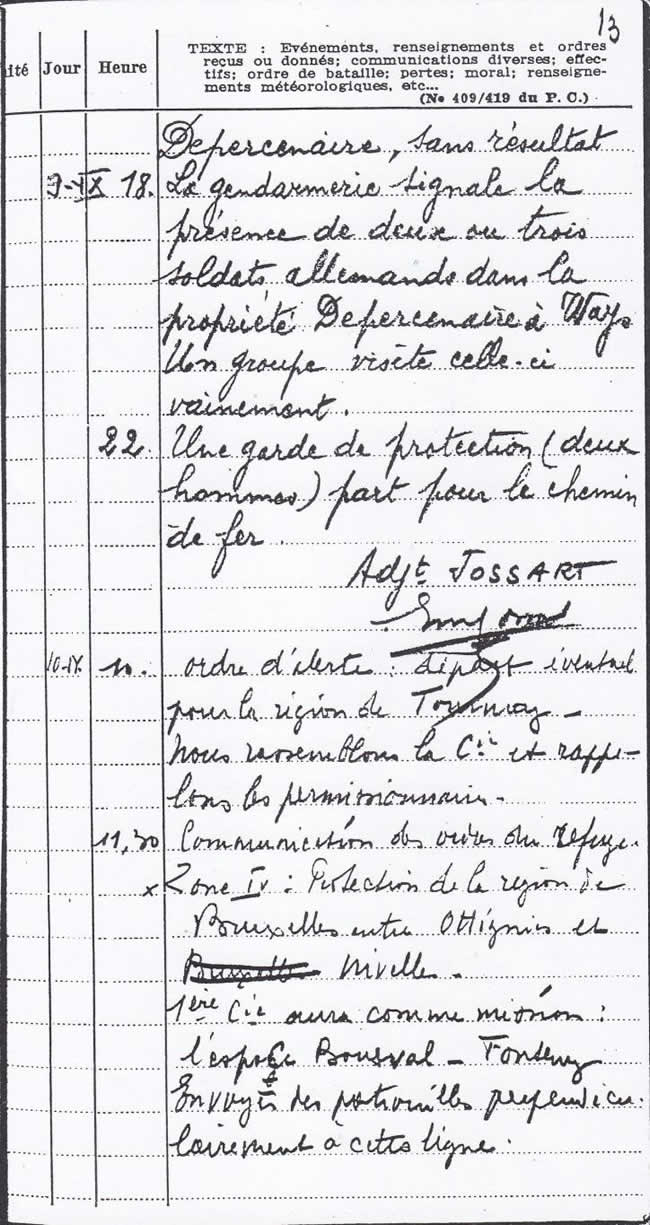 13
ité Jour Heure
TEXTE : Evénements, renseignements et ordres
reçus ou donnés; communications diverses; effec-
tifs; ordre de bataille; pertes; moral; renseigne-
ments météorologiques, etc...
(No 409/419 du P. C.)
Depercenaire, sans résultat
9-IX 18. La gendarmerie signale la
présence de deux ou trois
soldats allemands dans la
propriété Depercenaire à Ways
Un groupe visite celle-ci
vainement.
22. Une garde de protection (deux
hommes) part pour le chemin
de fer.
Adjt JOSSART
10-IX. 10. Ordre d'alerte : départ éventuel
pour la région de Tournay -
Nous rassemblons la Cie et rappe-
lons les permissionnaires -
11,30 Communication des ordres du Refuge.
x Zone IV : Protection de la région de
Bruxelles entre Ottignies et
Bruxelles Nivelles -
1ère Cie aura comme mission :
l'espace Bousval - Fonteny
Envoyés des patrouilles perpendicu-
lairement à cette ligne.